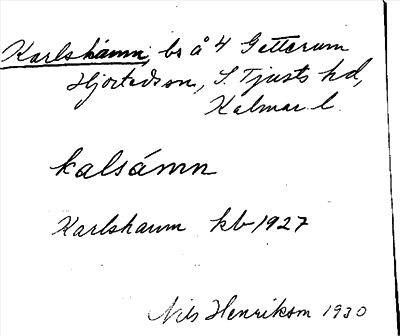 Karlshamn, bs å 4 Getterum
Hjorted sn, S. Tjusts hd,
Kalmar l.
kalsámn
Karlshamn kb 1927
Nils Henrikson 1930